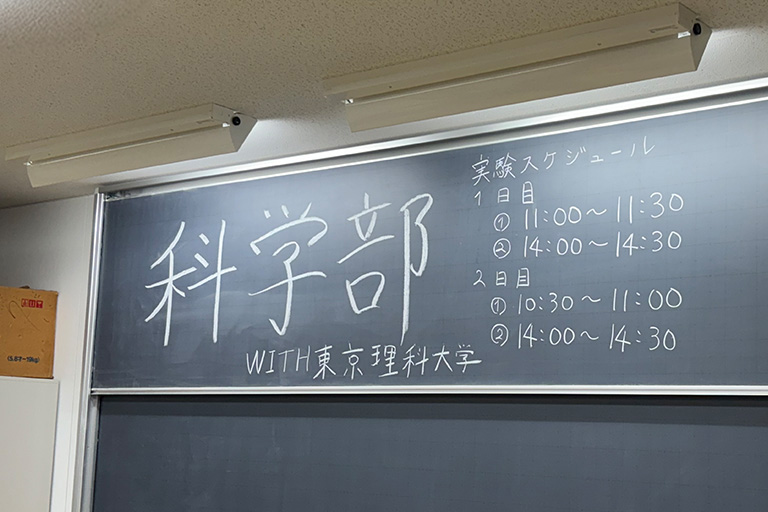 科学部
WITH東京理科大学
実験スケジュール
1日目
① 11:00〜11:30
② 14:00〜14:30
2日目
① 10:30〜11:00
② 14:00〜14:30